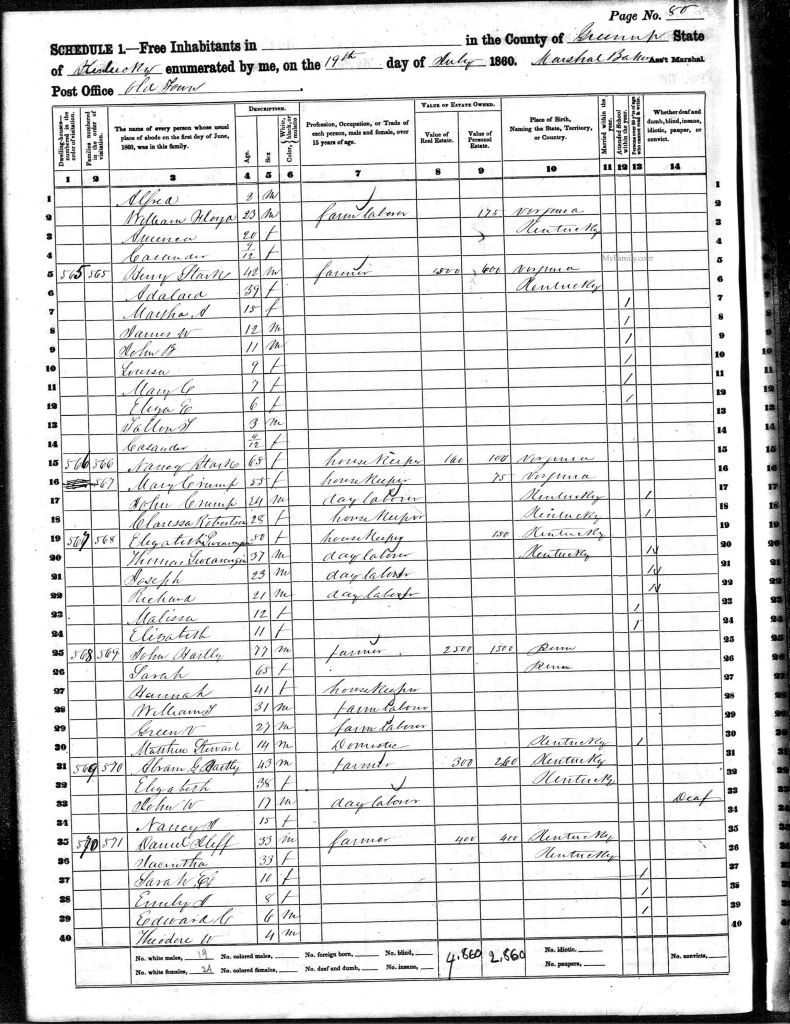 Page No. 80
SCHEDULE 1.—Free Inhabitants in in the County of Greenup State
of Kentucky enumerated by me, on the 19th day of July 1860. Marshal Baker Ass't Marshal.
Post Office Old Town
Dwelling-houses—numbered in the order of visitation.
Families numbered in the order of visitation.
The name of every person whose usual place of abode on the first day of June, 1860, was in this family.
DESCRIPTION.
Age.
Sex.
Color, White, black, or mulatto.
Profession, Occupation, or Trade of each person, male and female, over 15 years of age.
VALUE OF ESTATE OWNED.
Value of Real Estate.
Value of Personal Estate.
Place of Birth, Naming the State, Territory, or Country.
Married within the year.
Attended School within the year.
Persons over 20 y'rs of age who cannot read & write.
Whether deaf and dumb, blind, insane, idiotic, pauper, or convict.
1 2 3 4 5 6 7 8 9 10 11 12 13 14
1 Alfred 2 m 1
2 William Floyd 23 m farm laborer 175 Virginia 2
3 America 20 f Kentucky 3
4 Casander 9/12 f 4
5 565 565 Henry Stark 42 m farmer 1500 600 Virginia 5
6 Adalaid 39 f Kentucky 6
7 Marsha A 15 f 1 7
8 James W 12 m 1 8
9 John B 11 m 1 9
10 Louisa 9 f 1 10
11 Mary C 7 f 1 11
12 Eliza E 6 f 1 12
13 3 m 13
14 Casander 9/12 f 14
15 566 566 Nancy Stark 68 f house Keeper 160 100 Virginia 15
16 567 Mary Crump 55 f house Keeper 75 Virginia 16
17 John Crump 24 m day labourer Kentucky 1 17
18 Claressa Robertson 28 f house Keeper Kentucky 1 18
19 567 568 Elizabeth 50 f house Keeper 150 Kentucky 19
20 Thomas 37 m day laborer Kentucky 20
21 Joseph 23 m day laborer 21
22 Richard 21 m day laborer 22
23 Malissa 12 f 1 23
24 Elizabeth 11 f 1 24
25 568 569 John Hartly 77 m farmer 2500 1500 Penn 25
26 Sarah 65 f Penn 26
27 Hannah 41 f house Keeper 27
28 William T 31 m farm labourer 28
29 Green V 27 m farm labourer 29
30 Matthew Steward 14 m Domestic Kentucky 1 30
31 569 570 Abram G Hartly 43 m farmer 300 260 Kentucky 31
32 Elizabeth 38 f Kentucky 32
33 John W 17 m day laborer Deaf 33
34 Nancy 15 f 34
35 570 571 Daniel 33 m farmer 400 400 Kentucky 35
36 Jacintha 33 f Kentucky 36
37 Sarah E 10 f 1 37
38 Emily 8 f 1 38
39 Edward C 6 m 1 39
40 Theodore W 4 m 40
No. white males, 19 No. colored males, No. foreign born, No. blind, 4,860 2,860 No. idiotic.
No. white females, 21 No. colored females, No. deaf and dumb, No. insane, No. paupers, No. convicts,
MyFamily.com